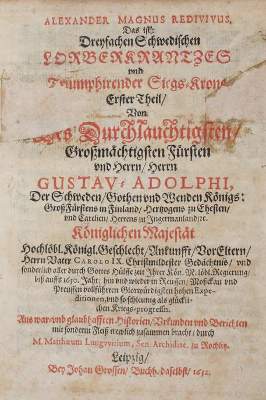 ALEXANDER MAGNUS REDIVIVUS,
Das ist:
Dreyfachen Schwedischen
LORBERKRANTZES
und
Triumphirender Siegs-Krone
Erster Theil/
Von
Des Durchlauchtigsten/
Großmächtigsten Fürsten
und Herrn/ Herrn
GUSTAV-ADOLPHI,
Der Schweden/ Gothen und Wenden Königs:
Groß Fürstens in Finland/ Hertzogens zu Ehesten/
und Carelien/ Herrens zu Ingermanland/ ꝛc.
Königlichen Majestät
Hochlöbl. Königl. Geschlecht/ Ankunfft/ Vor Eltern/
Herrn Vater CAROLO IX. Christmildester Gedächtnis/ und
sonderlich aller durch Gottes Hülffe zeit Ihrer Kön. M. löbl. Regierung/
biß auffs 1630. Jahr/ hin und wieder in Reussen/ Moßckau und
Preussen vollführten Glorwürdigsten hohen Expe-
ditionen, und so schleunig als glückli-
chen Kriegs-progressen.
Aus war- und glaubhafften Historien/ Urkunden und Berichten
mit sonderm Fleiß treulich zusammen bracht/ durch
M. Matthæum Lungwitium, Sen. Archidiac. zu Rochlitz.
Leipzig/
Bey Johan Grossen/ Buchh. daselbst/ 1632.